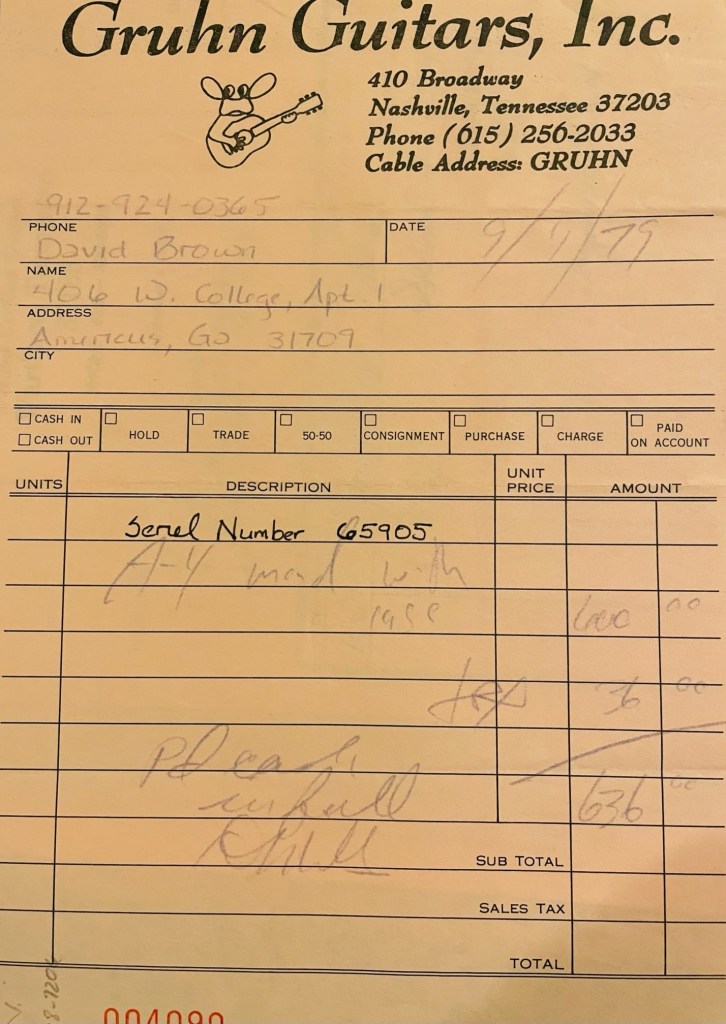 Gruhn Guitars, Inc.
410 Broadway
Nashville, Tennessee 37203
Phone (615) 256-2033
Cable Address: GRUHN
912-924-0365
PHONE
DATE
David Brown
NAME
406 W. College, Apt. 1
ADDRESS
Americus, Ga 31709
CITY
CASH IN
CASH OUT
HOLD
TRADE
50-50
CONSIGNMENT
PURCHASE
CHARGE
PAID
ON ACCOUNT
UNITS
DESCRIPTION
UNIT
PRICE
AMOUNT
Serial Number 65905
A-4 mand with
600 00
tax 36 00
Pd cash
in full
636 00
SUB TOTAL
SALES TAX
TOTAL
004090